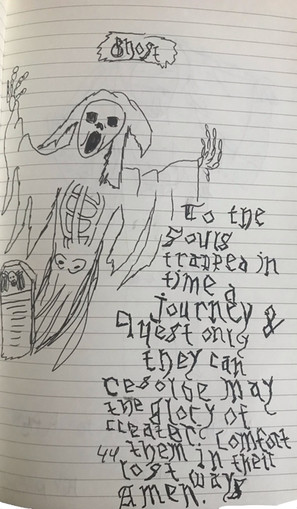 Ghost
To the
Souls
trapped in
time a
journey &
Quest only
they can
resolve may
the glory of
creater comfort
44 them in their
lost ways
Amen.